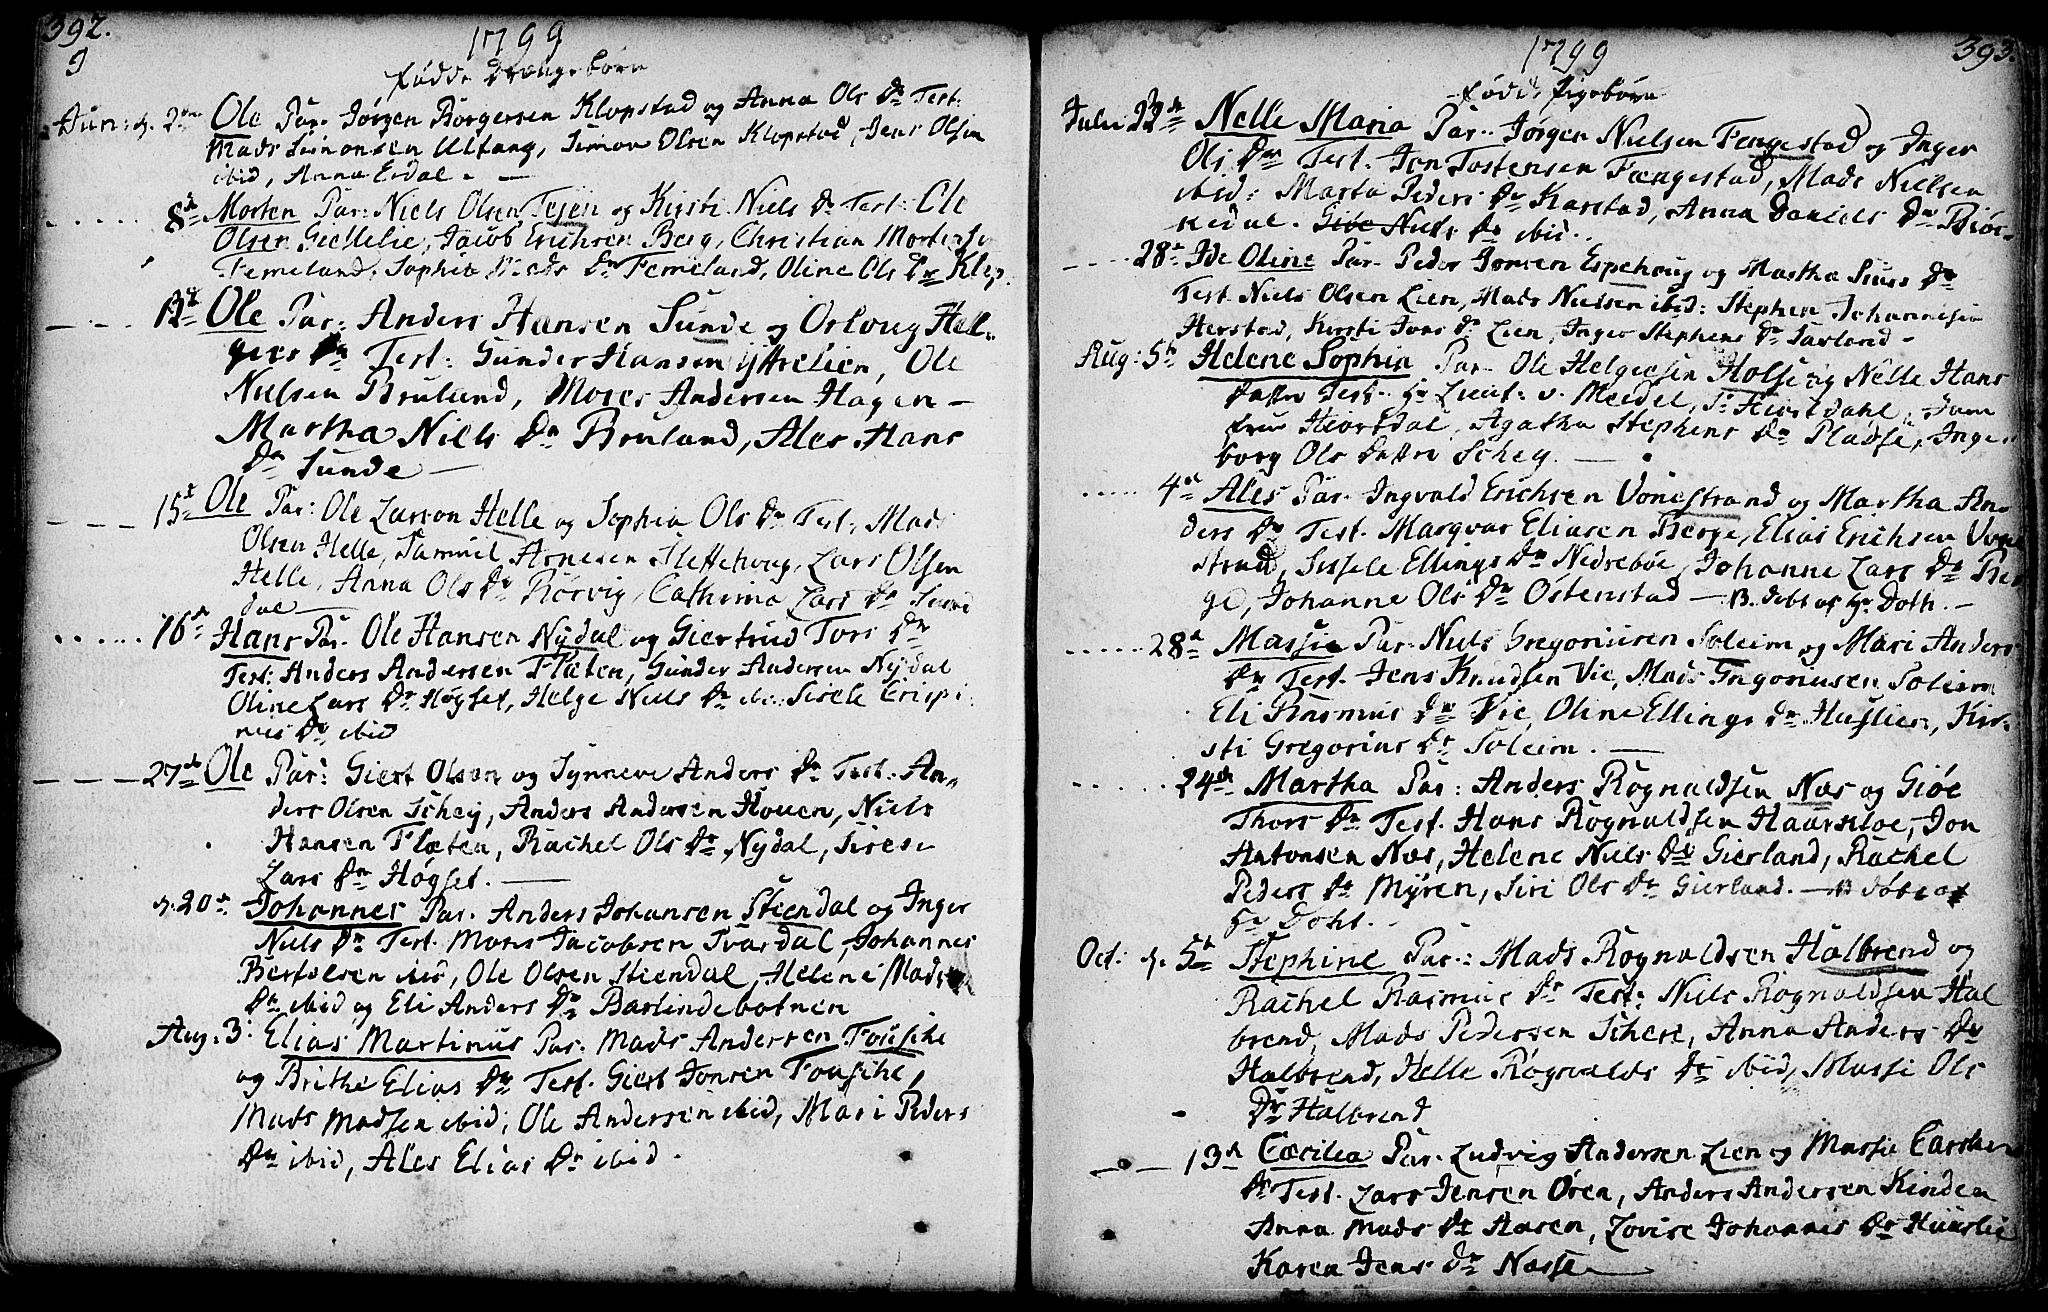 392.
1799
Fødde Drengebørn
Jun: d. 2den Ole Par. Jørgen Børgersen Klopstad og Anna Ols Dr Test:
Mads Simonsen Ultang, Simon Olsen Klopstad, Jens Olsen
ibid, Anna Erdal. -
8d Morten Par: Niels Olsen Tejen og Kirsti Niels Dr Test: Ole
Olsen Giellelie, Jacob Erichsen Berg, Christian Mortensen
Femeland, Sophia Mads Dr Femeland, Oline Ols Dr Klep
Ole Par: Anders Hansen Sunde og Osloug Hel-
gers Dr Test: Gunder Hansen Ytrelien, Ole
Nielsen Bruland, Moses Andersen Hagen -
Martha Niels Dr Bruland, Ales Hans
Dr Sunde -
15d Ole Par: Ole Larson Helle og Sophia Ols Dr Test: Mads
Olsen Helle, Samuel Arnesen Slettehoug, Lars Olsen
Helle, Anna Ols Dr Rørvig, Cathrina Lars Dr Sund
dal
16d Hans Par. Ole Hansen Nydal og Giertrud Tors Dr
Test: Anders Andersen Flæten, Gunder Andersen Nydal
Oline Lars Dr Høgset, Helge Niels Dr ib: Sisele Crispi
nus Dr ibid
27d Ole Par: Giert Olsen og Synneve Anders Dr Test: An-
ders Olsen Schey, Anders Andersen Houen, Niels
Hansen Flæten, Rachel Ols Dr Nydal, Sirese
Lars Dr Høgset. -
d. 20d Johannes Par. Anders Johansen Steendal og Inger
Niels Dr Test. Mons Jacobsen Svardal, Johannes
Bertelsen ibid, Ole Olsen Steendal, Helene Mads
Dr ibid og Eli Anders Dr Barlindebotnen
Aug. 3: Elias Martinus Par. Mads Andersen Fouske
og Brithe Elias Dr Test. Giert Jonsen Fouske,
Mads Madsen ibid, Ole Andersen ibid, Mari Peders
Dr ibid, Ales Elias Dr ibid.
393.
1799
Fødde Pigebørn
Julii 22d Nelle Maria Par. Jørgen Nielsen Fengestad og Inger
Ols Dr Test. Jon Tostensen Fængestad, Mads Nielsen
ibid: Marta Peders Dr Karstad, Anna Daniels Dr Biør-
kedal. Giøe Niels Dr ibid.
28d Ide Oline Par. Peder Jonsen Espehoug og Martha Siurs Dr
Test. Niels Olsen Lien, Mads Nielsen ibid: Stephen Johannesen
Herstad, Kirsti Jons Dr Lien, Inger Stephens Dr Sarland -
Aug: 5d Helene Sophia Par. Ole Helgesen Holsen og Nelle Hans
Datter Test. Hr Lieut: v. Meidel, Hr Hiortdahl, Jom
frue Hiortdal, Agatha Stephens Dr Pladse, Inge
borg Ols Datter Schey. -
4d Ales Par. Ingvald Erichsen Vonestrand og Martha An-
ders Dr Test. Margvar Eliasen Berge, Elias Erichsen Vone
strand, Sissele Ellings Dr Nedrebøe, Johanne Lars Dr Ber
ge, Johanne Ols Dr Ostenstad - B. døbt af Hr Doth. -
28d Massie Par. Niels Gregoriusen Soleim og Mari Anders
Dr Test. Jens Knudsen Vie, Mads Ingoriusen Soleim
Eli Rasmus Dr Vie, Oline Ellings Dr Huslien, Kir-
sti Gregorius Dr Soleim. -
24d Martha Par: Anders Rognaldsen Næs og Giøe
Thors Dr Test. Hans Rognaldsen Haarkloe, Jon
Antonsen Næs, Helene Niels Dr Gierland, Rachel
Peders Dr Myren, Siri Ols Dr Gierland. - B døbt af
Hr Doht. -
Oct: d. 5d Stephine Par: Mads Rognaldsen Halbrend og
Rachel Rasmus Dr Test: Niels Rognaldsen Hal
brend, Mads Pedersen Schere, Anna Anders Dr
Halbrend, Helle Rognalds Dr ibid, Massi Ols
Dr Halbrend
13d Cæcilia Par. Ludvig Andersen Lien og Massie Carsten
Dr Test. Lars Jensen Øren, Anders Andersen Kinden
Anna Mads Dr Aasen, Lovise Johannis Dr Huuslie
Karen Jens Dr Nasse